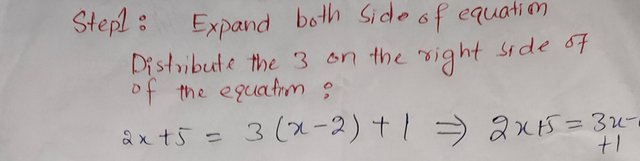 Step1: Expand both Side of equation
Distribute the 3 on the right side of
of the equation :
2x+5 = 3(x-2)+1 ⇒ 2x+5 = 3x-
+1